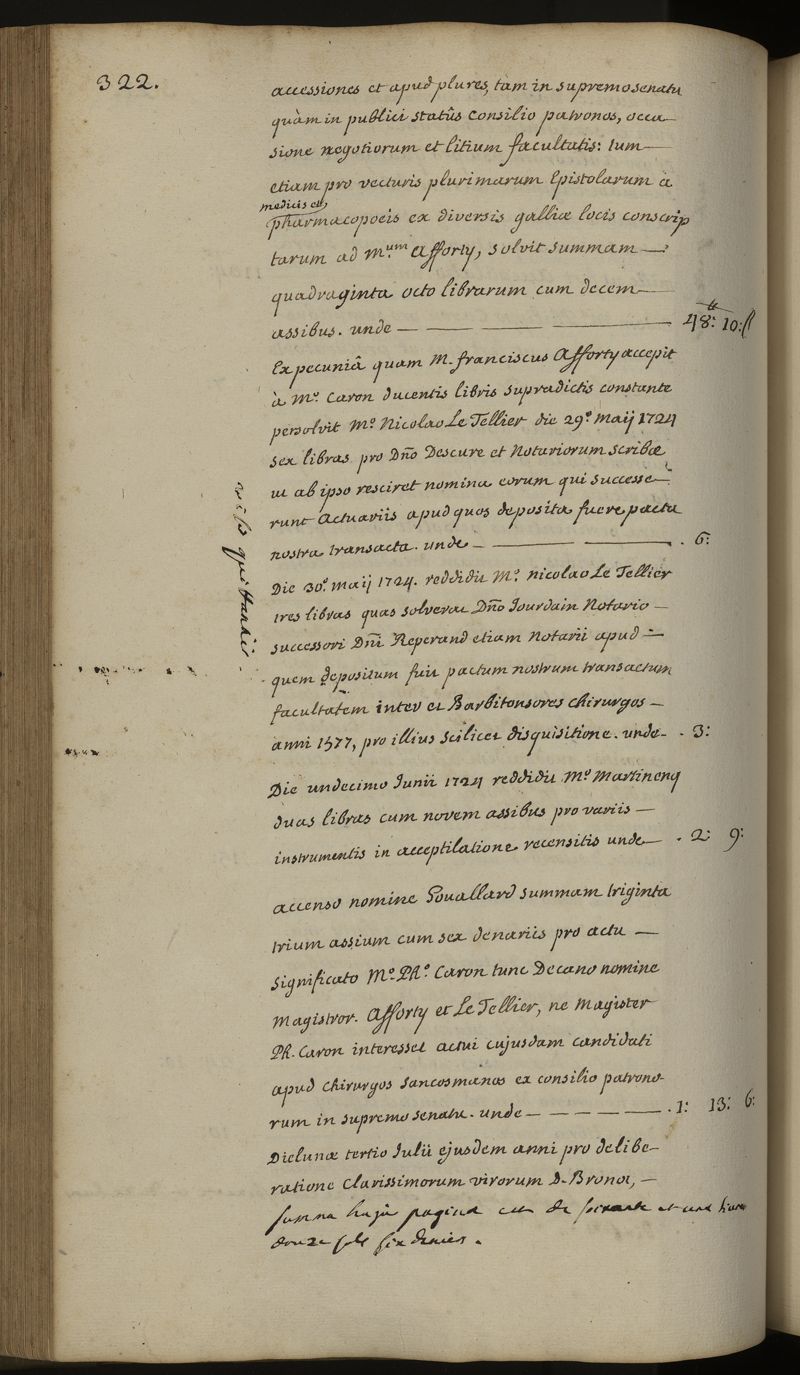 322.
accessiones et apud plures, tam in supremo senatu
quàm in publici statûs consilio patronos, occa-
sione negotiorum et litium facultatis: tum
etiam pro vecturis plurimarum Epistolarum à
medicis et
pharmacopoeis ex diversis galliæ locis conscrip
tarum ad M.um Afforty, solvit summam
quadraginta octo librarum cum decem
assibus. unde — — — — 48.tt 10:ſ
Ex pecuniâ quam M. franciscus Afforty accepit
à M.o Caron ducentis libris supradictis constante
persolvit M.o Nicolao Le Tellier die 29.o Maij 1724
sex libras pro Dño Descure et Notariorum scribæ
ut ab ipso resciret nomina eorum qui successe-
runt Actuariis apud quos deposita fuere pacta
nostra transacta. unde — — — . 6:
Die 30.o Maij 1724. reddidit M.o nicolao Le Tellier
tres libras quas solverat Dño Jourdain Notario —
successori Dñi Reperand etiam Notarii apud —
quem depositum fuit pactum nostrum transactum
facultatem inter et Barbitonsores chirurgos —
anni 1577, pro illius scilicet disquisitione. unde - . 3:
Die undecimo Junii 1724 reddidit M.o Martinenq
duas libras cum novem assibus pro variis —
instrumentis in acceptilatione recensitis unde — . 2: 9:
accenso nomine Gouallard summam triginta
trium assium cum sex denariis pro actu —
significato M.o Ph.o Caron tunc Decano nomine
Magistror. Afforty et Le Tellier, ne Magister
Ph. Caron interesset actui cujusdam candidati
apud chirurgos sancosmanos ex consilio patrono-
rum in supremo senatu. unde — — — — — . 1: 13: 6:
Die lunæ tertio Julii ejusdem anni pro delibe-
ratione Clarissimorum virorum D. Bronot, —
summa hujus paginæ est de soixante et une livre
douze sols six deniers.
viso quittancis